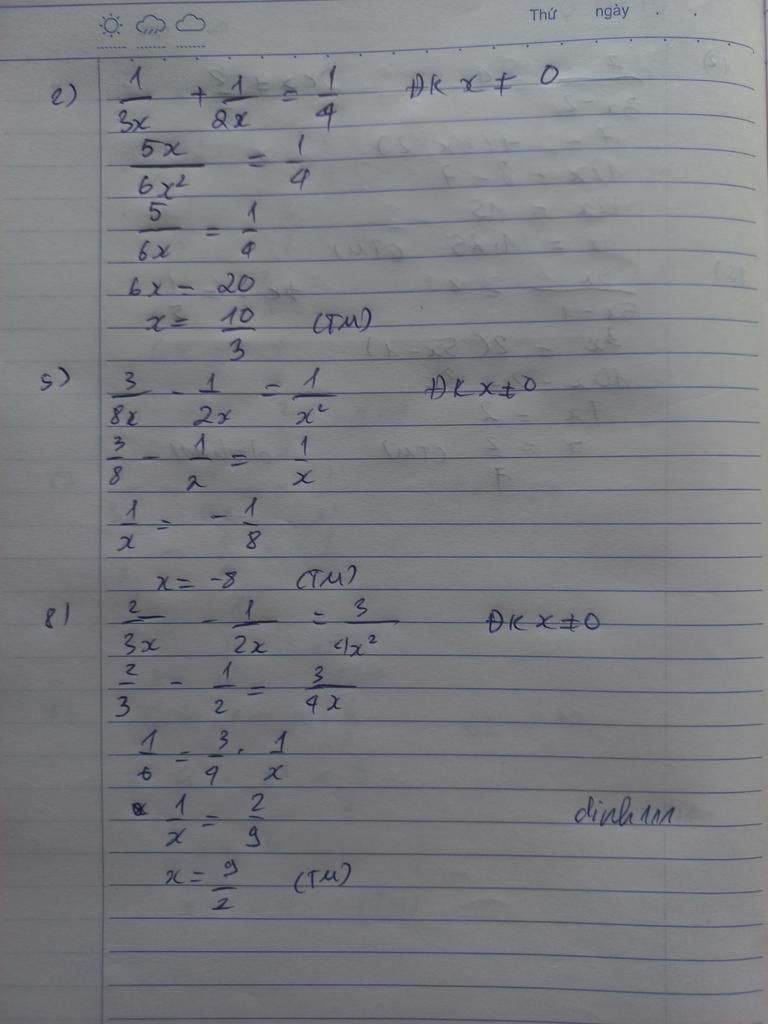 Thứ ngày . .
2) 1/3x + 1/2x = 1/4 ĐK x ≠ 0
5x/6x² = 1/4
5/6x = 1/4
6x = 20
x = 10/3 (TM)
5) 3/8x - 1/2x = 1/x² ĐK x ≠ 0
3/8 - 1/2 = 1/x
1/x = -1/8
x = -8 (TM)
8) 2/3x - 1/2x = 3/4x² ĐK x ≠ 0
2/3 - 1/2 = 3/4x
1/6 = 3/4 . 1/x
1/x = 2/9 dinh111
x = 9/2 (TM)